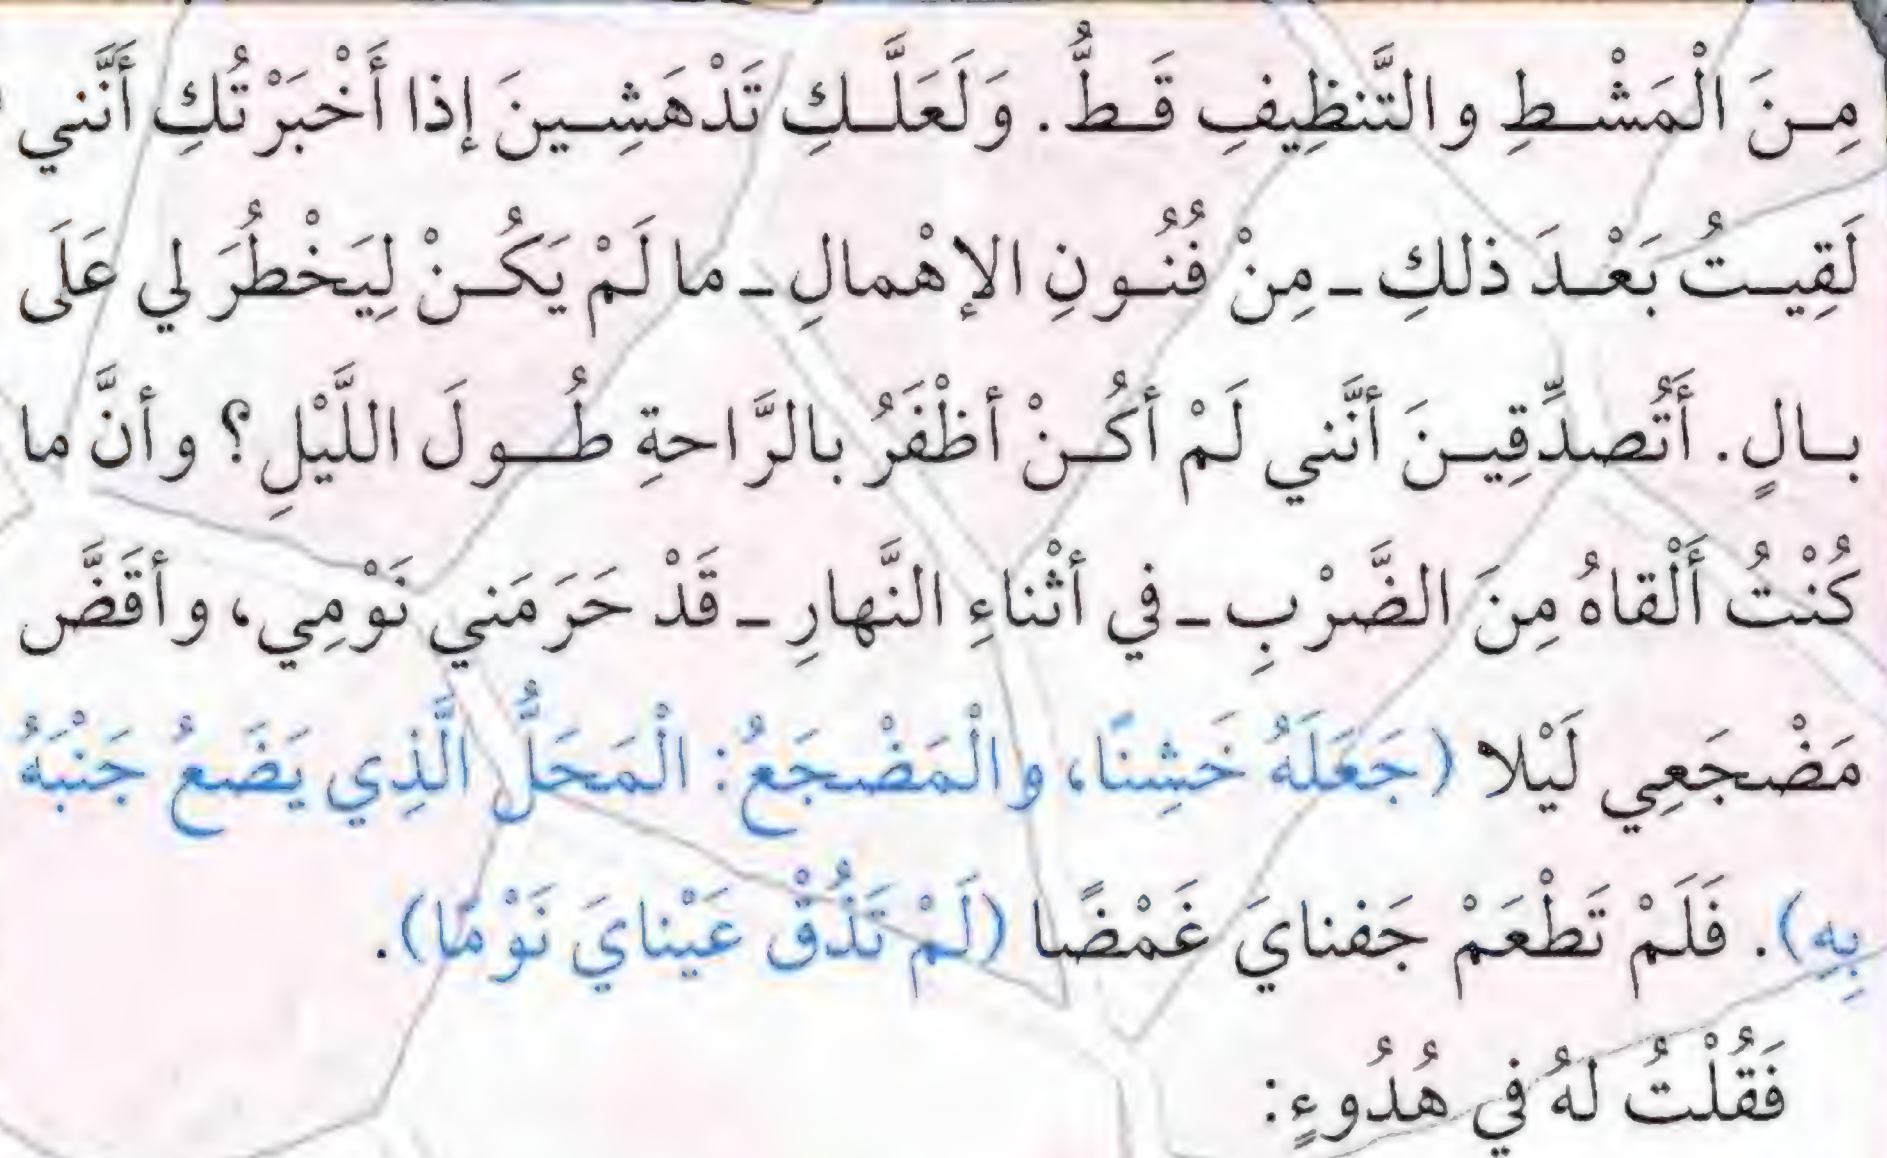 مِنَ الْمَشْطِ والتَّنظِيفِ قَطُّ. وَلَعَلَّكِ تَدْهَشِينَ إذا أَخْبَرْتُكِ أَنَّني
لَقِيتُ بَعْدَ ذلكِ - مِنْ فُنُونِ الإهْمالِ - ما لَمْ يَكُنْ لِيَخْطُرَ لي عَلَى
بالٍ. أَتُصدِّقِينَ أنَّني لَمْ أكُنْ أظْفَرُ بالرَّاحةِ طُولَ اللَّيْلِ؟ وأنَّ ما
كُنْتُ أَلْقاهُ مِنَ الضَّرْبِ - في أثْناءِ النَّهارِ - قَدْ حَرَمَني نَوْمِي، وأقَضَّ
مَضْجَعِي لَيْلا (جَعَلَهُ خَشِنًا، والْمَضْجَعُ: الْمَحَلُّ الَّذِي يَضَعُ جَنْبَهُ
بِهِ). فَلَمْ تَطْعَمْ جَفنايَ غَمْضًا (لَمْ تَذُقْ عَيْنايَ نَوْمًا).
فَقُلْتُ لهُ في هُدُوءٍ: